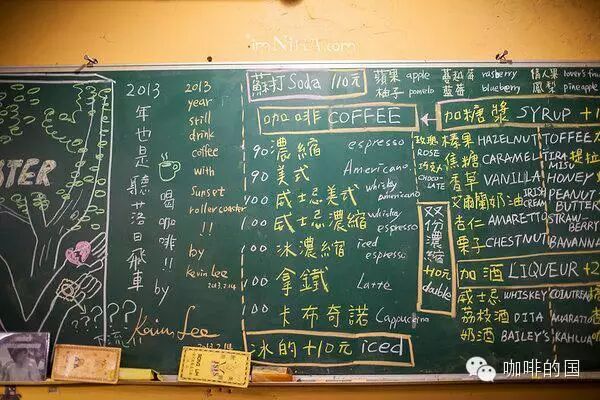 imNikA.com
STER
2013
年也是聽落日飛車
喝咖啡!!
by
Kevin Lee
2013.2.14
2013
year
still
drink
coffee
with
sunset
rollercoaster
!!
by
Kevin Lee
2013.2.14
蘇打 Soda 110元
蘋果 apple 蔓越莓 rasberry 情人果 lover's
柚子 pomelo 藍莓 blueberry 鳳梨 pineapple
咖啡 COFFEE
90 濃縮 espresso
90 美式 Americano
100 威士忌美式 whisky americano
100 威士忌濃縮 whisky espresso
100 冰濃縮 iced espresso
100 拿鐵 Latte
100 卡布奇諾 Cappuccino
冰的+10元 iced
雙份濃縮+10元 double
加糖漿 SYRUP +1
玫瑰 ROSE
巧克力 CHOCOLATE
榛果 HAZELNUT TOFFEE
焦糖 CARAMEL TIRAMISU 提拉
香草 VANILLA HONEY
艾爾蘭奶油 IRISH CREAM PEANUT BUTTER
杏仁 AMARETTO STRAWBERRY
栗子 CHESTNUT BANANA
加酒 LIQUEUR +2
威士忌 WHISKEY COINTREAU
荔枝酒 DITA AMARETTO
奶酒 BAILEY'S KAHLUA
咖啡的国